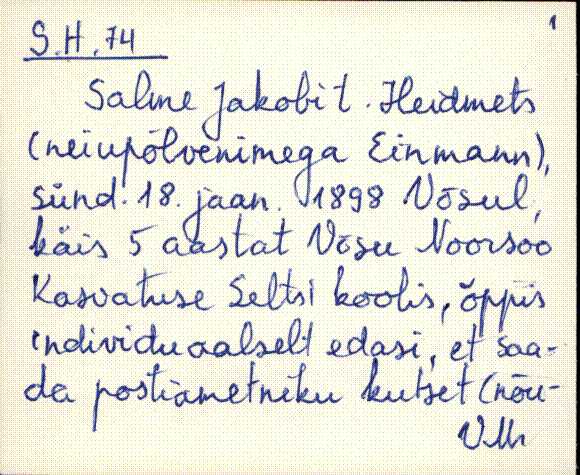 1
S.H. 74
Salme Jakobi t. Heidmets
(neiupõlvenimega Einmann),
sünd. 18. jaan. 1898 Võsul,
käis 5 aastat Võsu Noorsoo
Kasvatuse Seltsi koolis, õppis
individuaalselt edasi, et saa-
da postiametniku kutset (nõu-